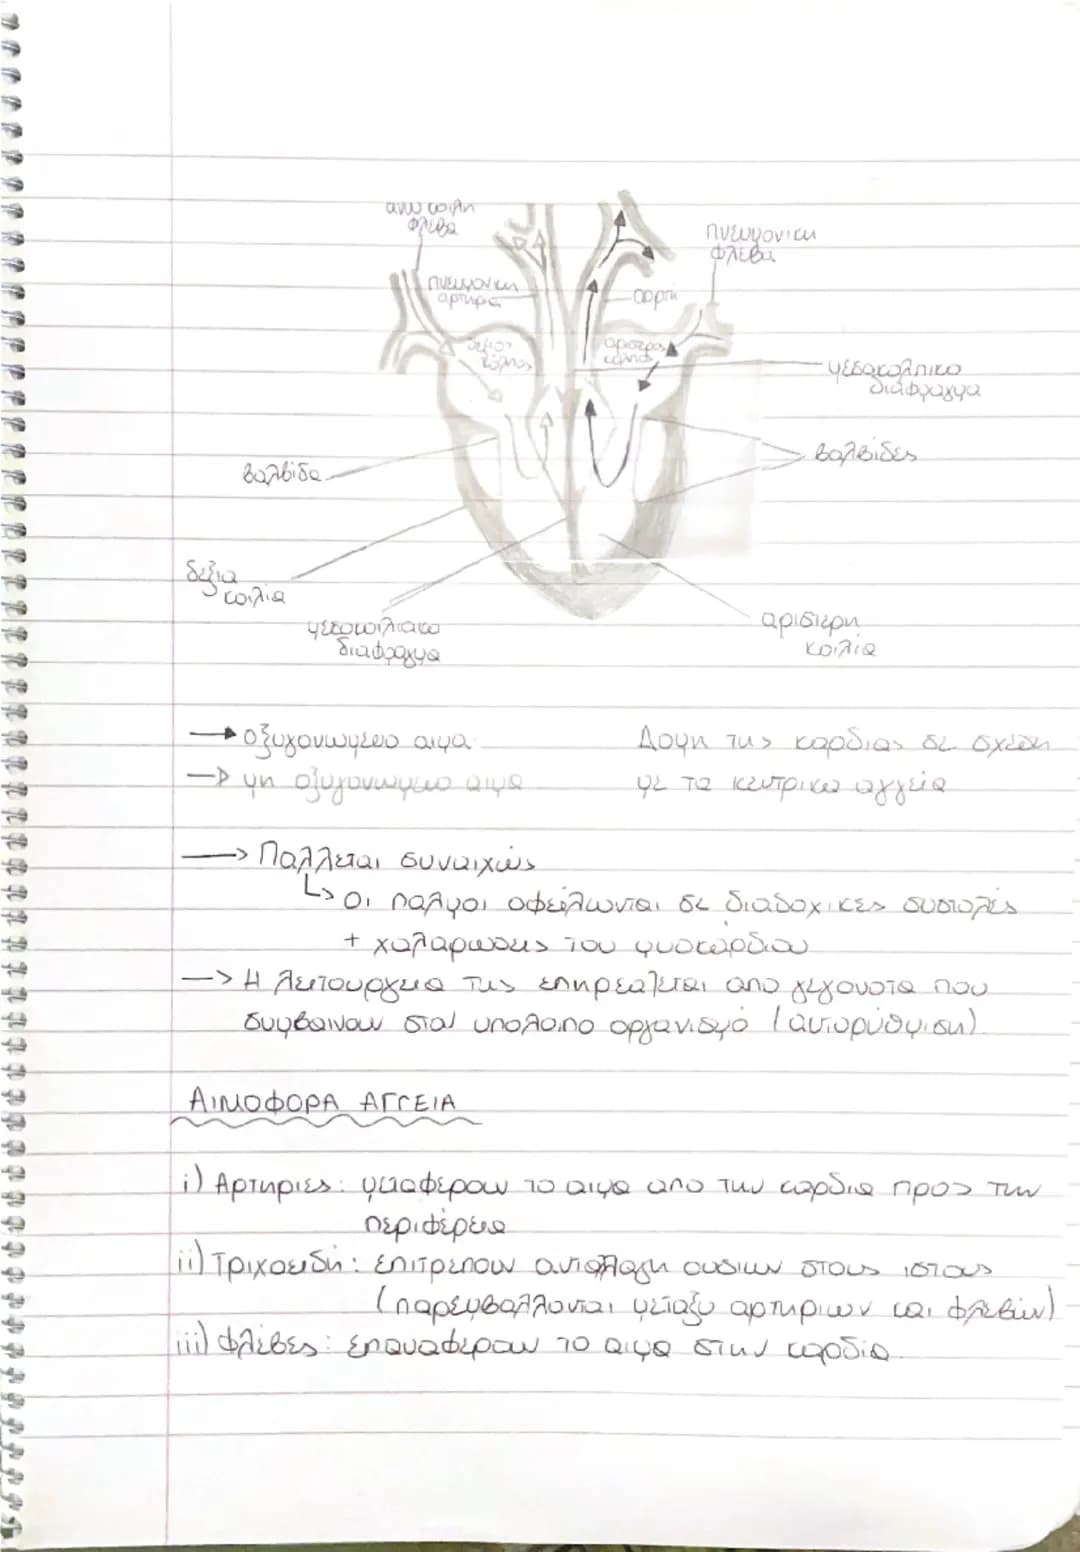 ανω κοιλη
φλεβα
πνευμονικη
αρτηρια
δεξιος
κολπος
αορτη
αριστερος
κολπος
πνευμονικη
φλεβα
μεσοκολπικο
διαφραγμα
βαλβιδες
βαλβιδα
δεξια
κοιλια
μεσοκοιλιακο
διαφραγμα
αριστερη
κοιλια
→ οξυγονωμενο αιμα
→ μη οξυγονωμενο αιμα
Δομη της καρδιας σε σχεση
με τα κεντρικα αγγεια
→ Παλλεται συναιχώς
↳ Οι παλμοι οφείλωνται σε διαδοχικες συστολές
+ χαλαρωσεις του μυοκαρδιου
→ Η λειτουργεια της επηρεαζεται απο γεγονοτα που
συμβαινουν στον υπολοιπο οργανισμό (αυτορύθμιση)
ΑΙΜΟΦΟΡΑ ΑΓΓΕΙΑ
i) Αρτηριες: μεταφερουν το αιμα απο την καρδια προς την
περιφέρεια
ii) Τριχοειδή: επιτρεπουν ανταλλαγη ουσιων στους ιστους
(παρεμβαλλονται μεταξυ αρτηριων και φλεβών)
iii) Φλέβες: επαναφερουν το αιμα στην καρδια.